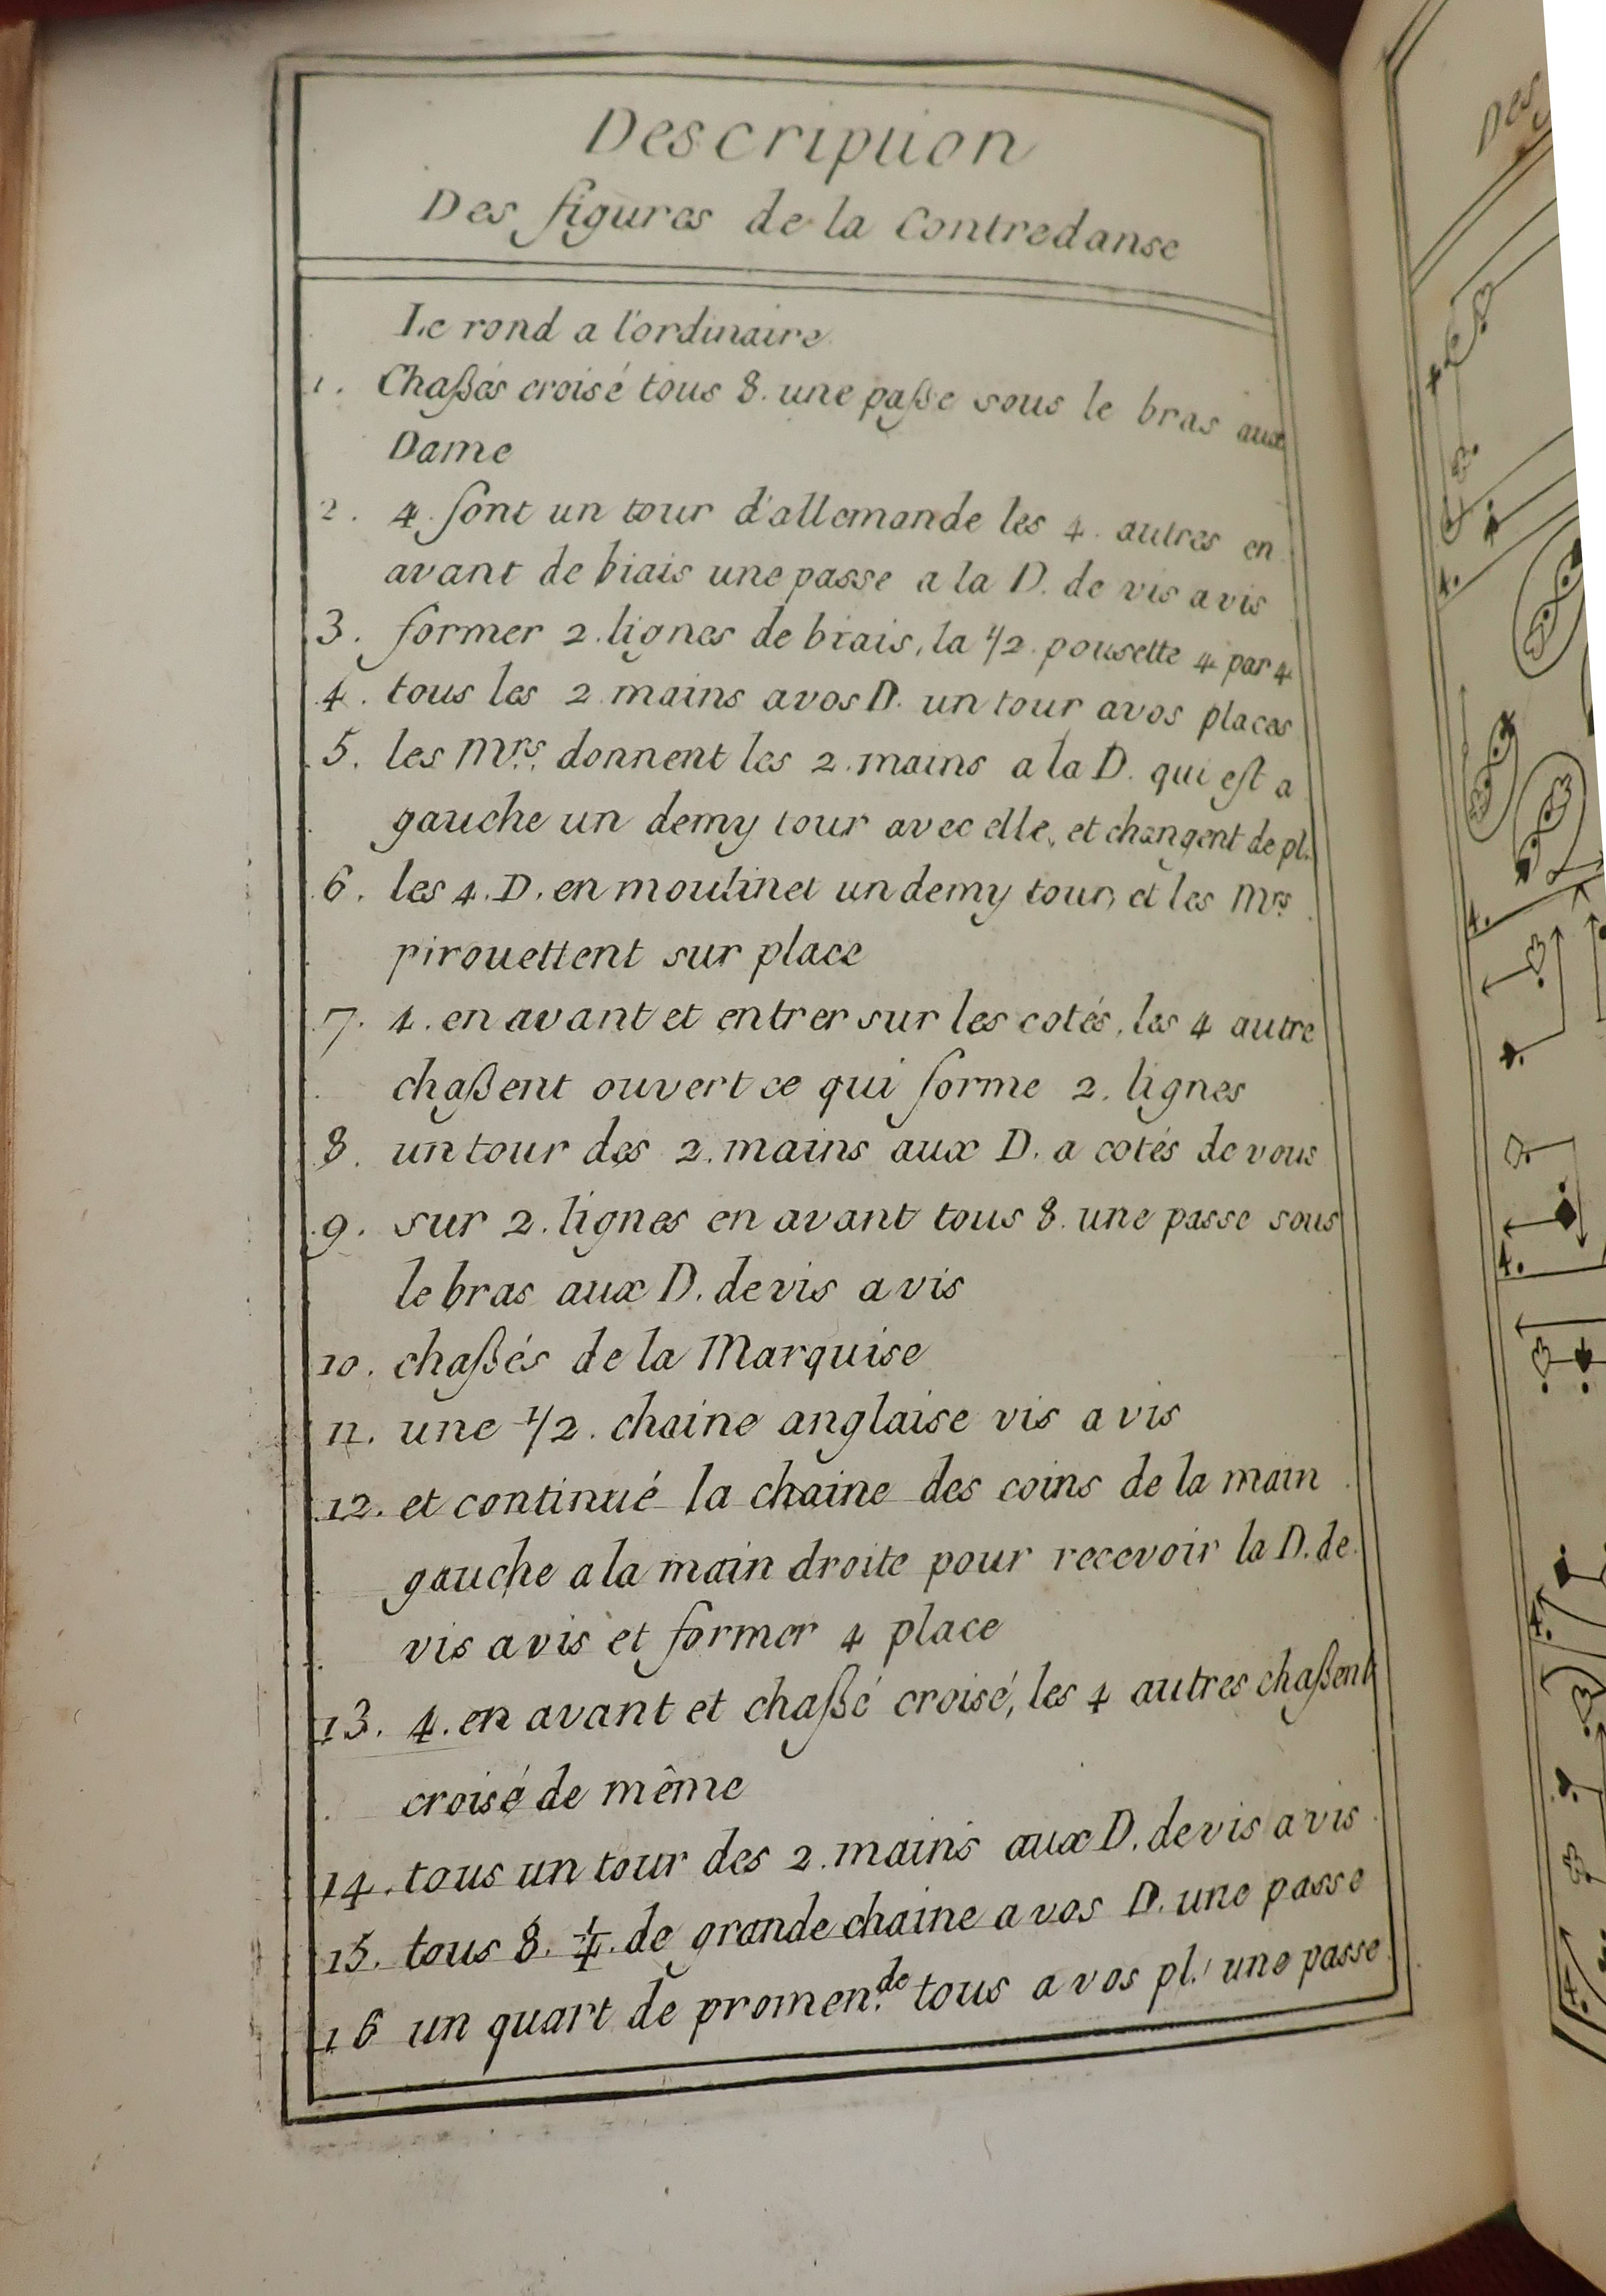 Description
Des figures de la Contredanse
Le rond a l'ordinaire
1. Chaßés croisé tous 8. une paße sous le bras aux
Dame
2. 4. font un tour d'allemande les 4. autres en
avant de biais une passe a la D. de vis a vis
3. former 2. lignes de biais, la 1/2. pousette 4 par 4
4. tous les 2 mains a vos D. un tour a vos places
5. les Mrs. donnent les 2. mains a la D. qui est a
gauche un demy tour avec elle, et changent de pl.
6. les 4. D. en moulinet un demy tour, et les Mrs
pirouettent sur place
7. 4. en avant et entrer sur les cotés, les 4 autre
chaßent ouvert ce qui forme 2. lignes
8. un tour des 2. mains aux D. a cotés de vous
9. sur 2. lignes en avant tous 8. une passe sous
le bras aux D. de vis a vis
10. chaßés de la Marquise
11. une 1/2. chaine anglaise vis a vis
12. et continué la chaine des coins de la main
gauche a la main droite pour recevoir la D. de
vis a vis et former 4 place
13. 4. en avant et chaßé croisé, les 4 autres chaßent
croisé de même
14. tous un tour des 2. mains aux D. de vis a vis
15. tous 8. 1/4. de grande chaine a vos D. une passe
16 un quart de promen.de tous a vos pl. une passe
Des
4.
4.
4.
4.